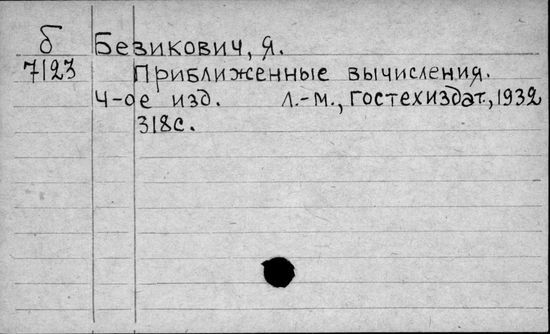 б Безикович, Я.
7123 Приближенные вычисления.
4-ое изд. Л.-М., Гостехиздат., 1932
318с.